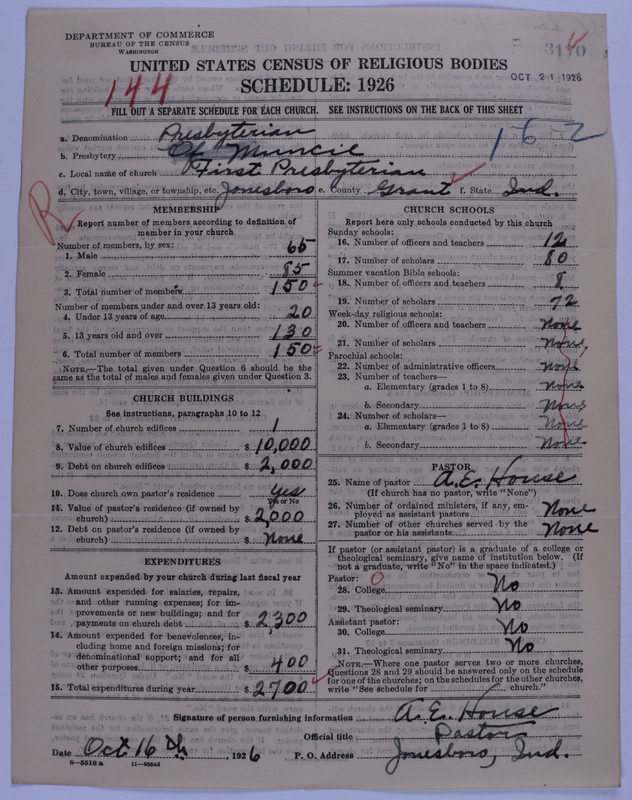 DEPARTMENT OF COMMERCE
BUREAU OF THE CENSUS
WASHINGTON
UNITED STATES CENSUS OF RELIGIOUS BODIES
OCT 21 1926
SCHEDULE: 1926
144
FILL OUT A SEPARATE SCHEDULE FOR EACH CHURCH. SEE INSTRUCTIONS ON THE BACK OF THIS SHEET
162
a. Denomination Presbyterian
b. Presbytery Of Muncil
c. Local name of church First Presbyterian
d. City, town, village, or township, etc. Jonesboro e. County Grant f. State Ind.
R
MEMBERSHIP
Report number of members according to definition of
member in your church
Number of members, by sex:
1. Male 65
2. Female 85
3. Total number of members 150
Number of members under and over 13 years old:
4. Under 13 years of age 20
5. 13 years old and over 130
6. Total number of members 150
NOTE.—The total given under Question 6 should be
same as the total of males and females given under Question 3.
CHURCH BUILDINGS
See instructions, paragraphs 10 to 12
7. Number of church edifices 1
8. Value of church edifices $ 10,000
9. Debt on church edifices $ 2,000
10. Does church own pastor's residence yes
Yes or No
11. Value of pastor's residence (if owned by
church) $ 2,000
12. Debt on pastor's residence (if owned by
church) $ None
EXPENDITURES
Amount expended by your church during last fiscal year
13. Amount expended for salaries, repairs,
and other running expenses; for im-
provements or new buildings; and for
payments on church debt $ 2,300
14. Amount expended for benevolences, in-
cluding home and foreign missions; for
denominational support; and for all
other purposes $ 400
15. Total expenditures during year $ 2700
CHURCH SCHOOLS
Report here only schools conducted by this church
Sunday schools:
16. Number of officers and teachers 12
17. Number of scholars 80
Summer vacation Bible schools:
18. Number of officers and teachers 8
19. Number of scholars 72
Week-day religious schools:
20. Number of officers and teachers None
21. Number of scholars None,
Parochial schools:
22. Number of administrative officers None
23. Number of teachers—
a. Elementary (grades 1 to 8) None
b. Secondary None
24. Number of scholars—
a. Elementary (grades 1 to 8) None
b. Secondary None
PASTOR
25. Name of pastor A. E. House
(If church has no pastor, write "None")
26. Number of ordained ministers, if any, em-
ployed as assistant pastors None
27. Number of other churches served by the
pastor or his assistants None
If pastor (or assistant pastor) is a graduate of a college or
theological seminary, give name of institution below. (If
not a graduate, write "No" in the space indicated.)
Pastor: O
28. College No
29. Theological seminary No
Assistant pastor:
30. College No
31. Theological seminary No
NOTE.—Where one pastor serves two or more churches,
Questions 28 and 29 should be answered only on the schedule
for one of the churches; on the schedules for the other churches,
write "See schedule for church."
Signature of person furnishing information A. E. House
Official title Pastor
Date Oct 16th, 1926 P. O. Address Jonesboro, Ind.
8—5518 a 11—90546